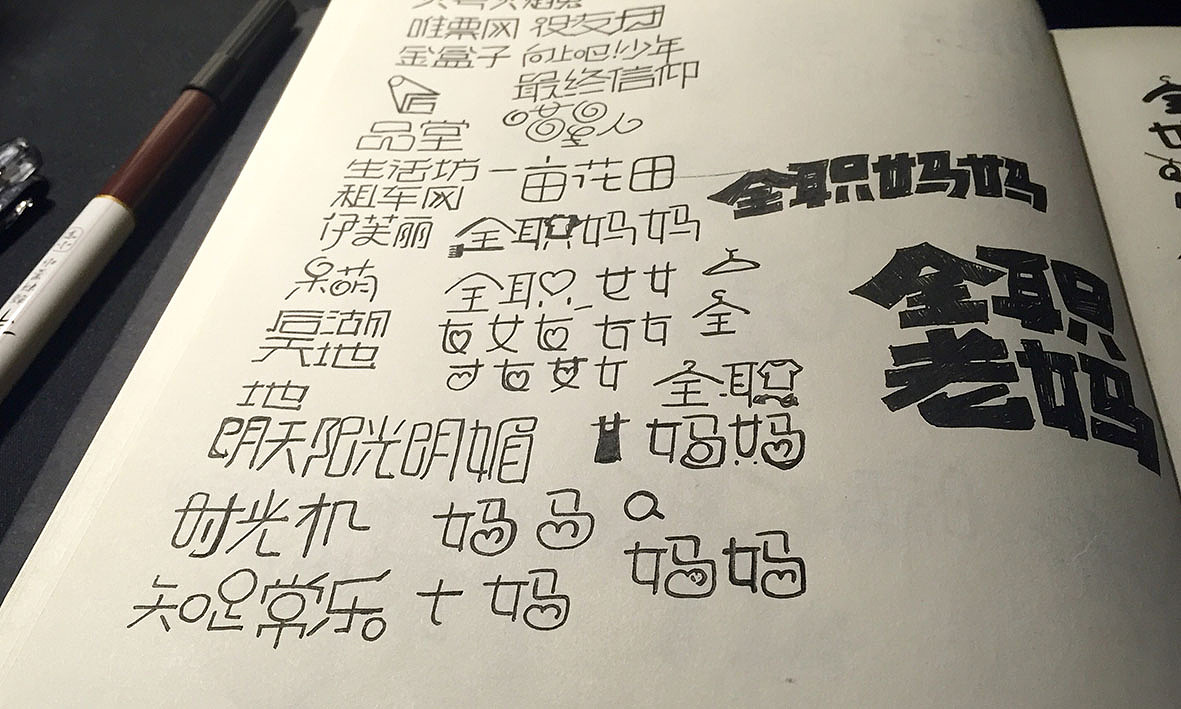 唯票网 很友团
金盒子 向上吧!少年
最终信仰
匠
品堂
生活坊 一亩花田
租车网
全职妈妈
伊芙丽 全职妈妈
呆萌 全职 女女
女女女 女女 全
湖
地
女女女女 全职
地
明天阳光明媚 女 妈妈
全职
老妈
时光机 妈 马
妈妈
知足常乐 十 妈